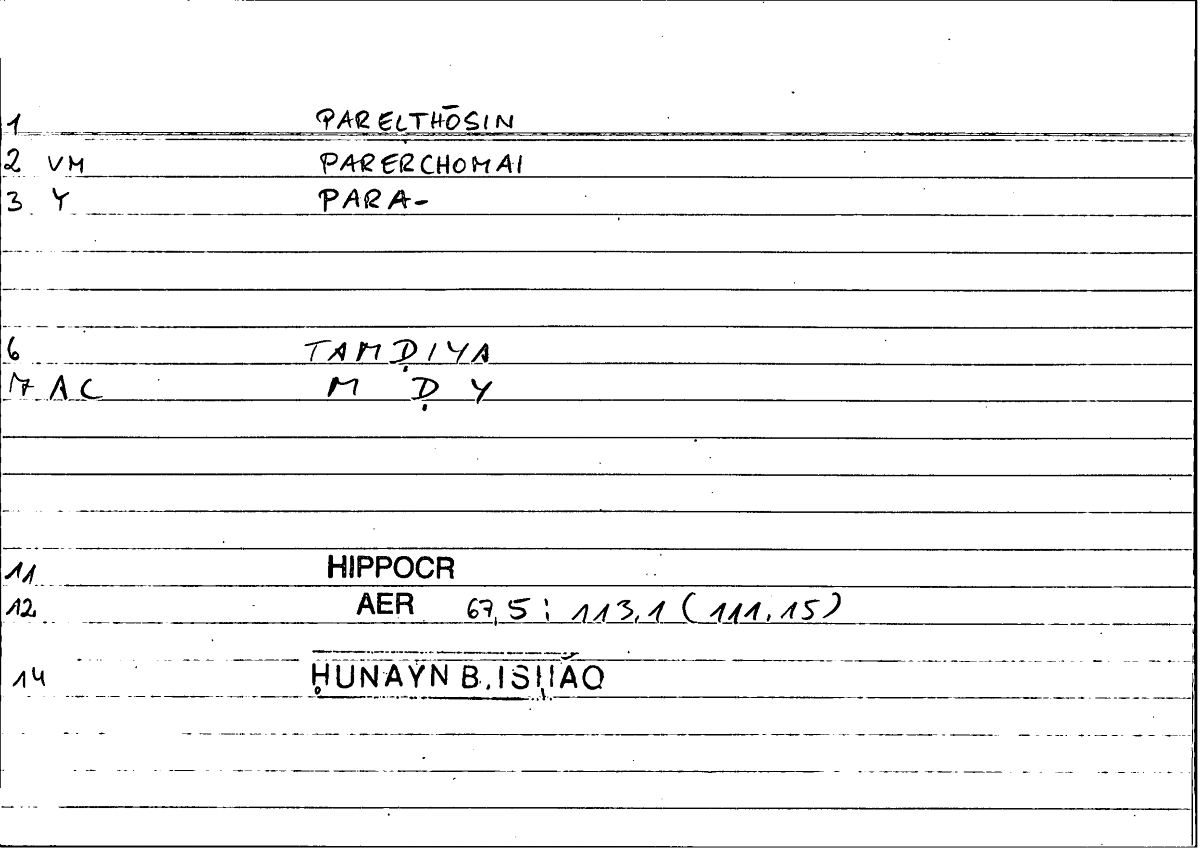 1 PARELTHŌSIN
2 VM PARERCHOMAI
3 Y PARA-
6 TAMḌIYA
7 AC M Ḍ Y
11 HIPPOCR
12 AER 67,5 : 113,1 (111,15)
14 ḤUNAYN B. ISḤĀQ